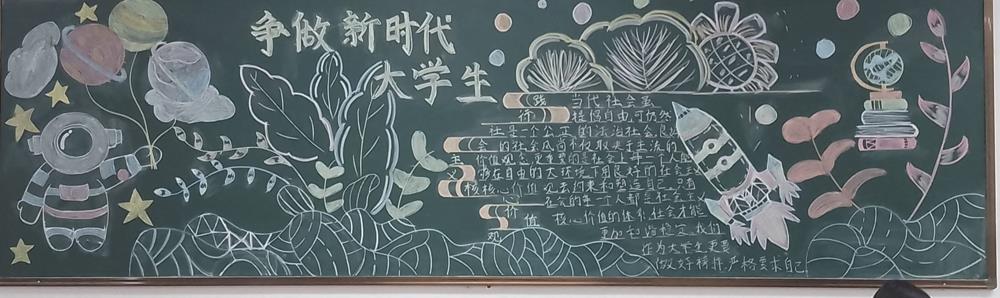 争做新时代
大学生
践 当代社会虽
行 提倡自由,可仍然
社是一个公正的法治社会,良好
会的社会风气不仅取决于主流的
主价值观念,更重要的是社会上每一个人的
义在自由的大环境下用良好的社会主
核核心价值观去约束和塑造自己,只有
心 在人的每一个人都是社会主
价值 核心价值的体系,社会才能
观 更加和谐稳定,我们
作为大学生更要
做好榜样,严格要求自己